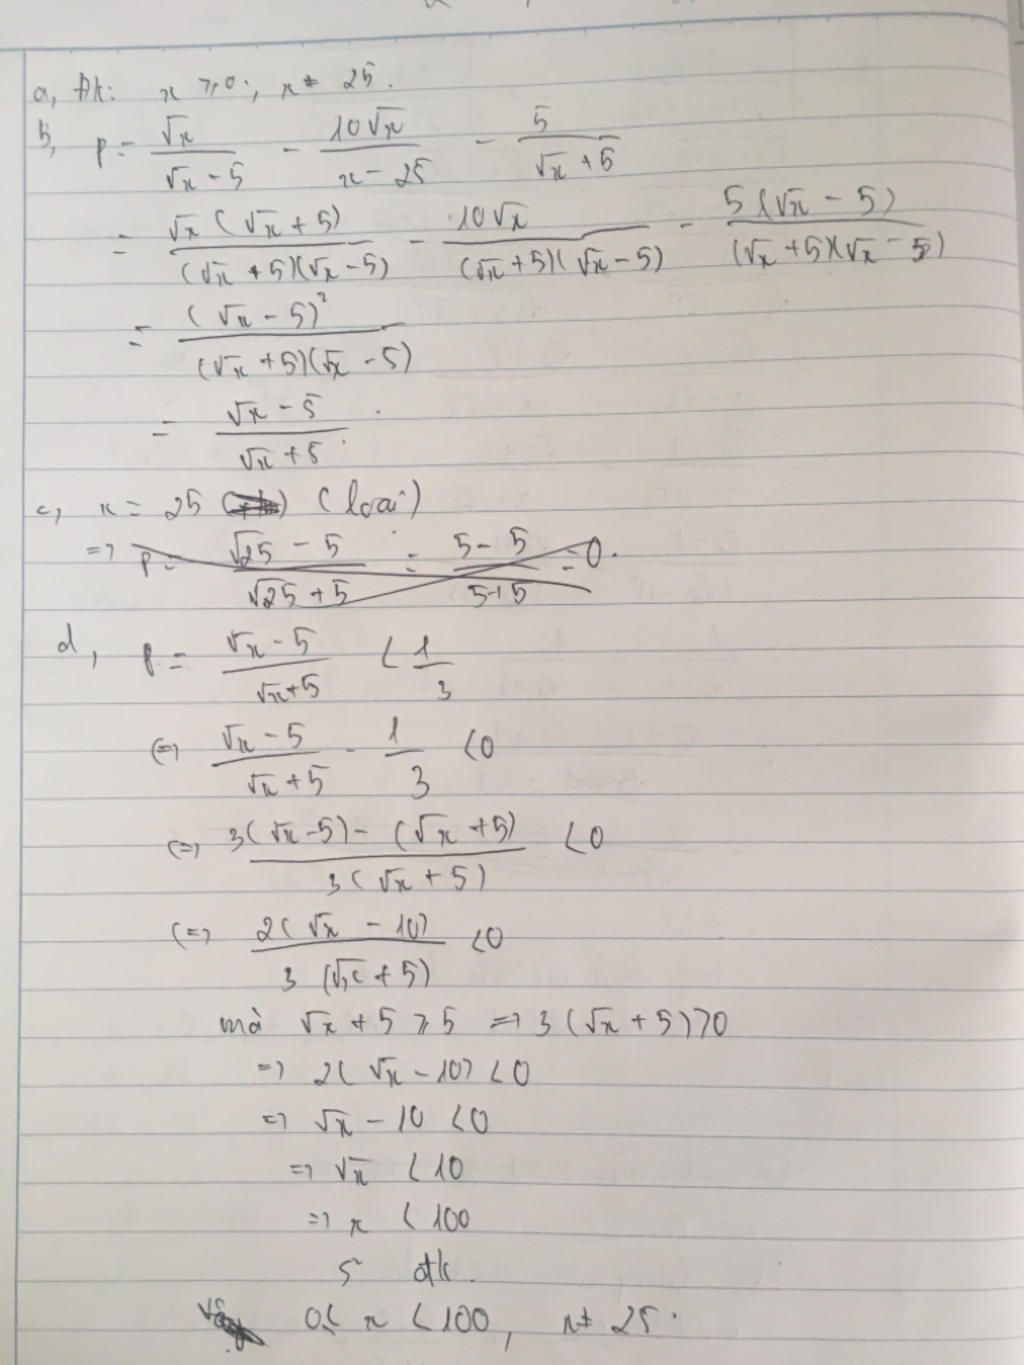 a, Đk: x ≥ 0; x ≠ 25.
b, P = √x/(√x - 5) - 10√x/(x - 25) - 5/(√x + 5)
= √x(√x + 5)/((√x + 5)(√x - 5)) - 10√x/((√x + 5)(√x - 5)) - 5(√x - 5)/((√x + 5)(√x - 5))
= (√x - 5)²/((√x + 5)(√x - 5))
= (√x - 5)/(√x + 5).
c, x = 25 (loại)
=> P = (√25 - 5)/(√25 + 5) = (5 - 5)/(5 + 5) = 0.
d, P = (√x - 5)/(√x + 5) < 1/3
<=> (√x - 5)/(√x + 5) - 1/3 < 0
<=> (3(√x - 5) - (√x + 5))/(3(√x + 5)) < 0
<=> 2(√x - 10)/(3(√x + 5)) < 0
mà √x + 5 ≥ 5 => 3(√x + 5) > 0
=> 2(√x - 10) < 0
=> √x - 10 < 0
=> √x < 10
=> x < 100
đk.
Vậy 0 ≤ x < 100, x ≠ 25.